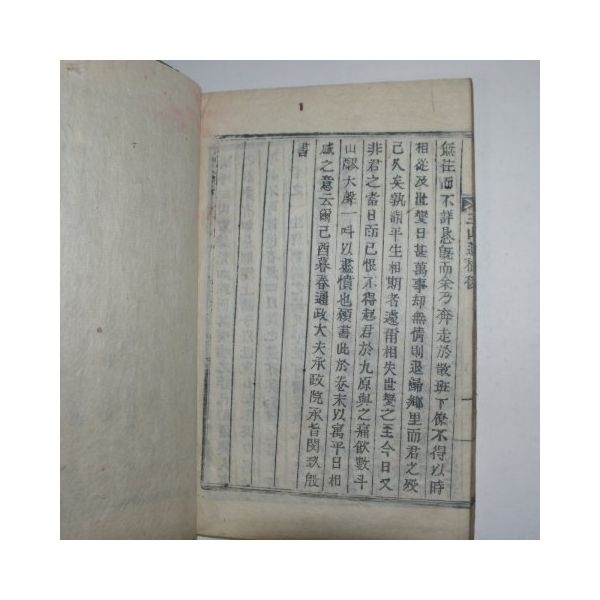 無往而不詳悉旣而余乃奔走於散班下僚不得以時
相從及世變日甚萬事却無情則退歸鄕里而君之歿
已久矣孰謂平生相期者遽爾相失世變之至今日又
非君之當日而已恨不得起君於九原與之痛飮數斗
山醪大聲一呌以盡憤也顧書此於卷末以寓平日相
感之意云爾己酉暮春通政大夫承政院承旨閔玖殷
書
三山遺稿後
1